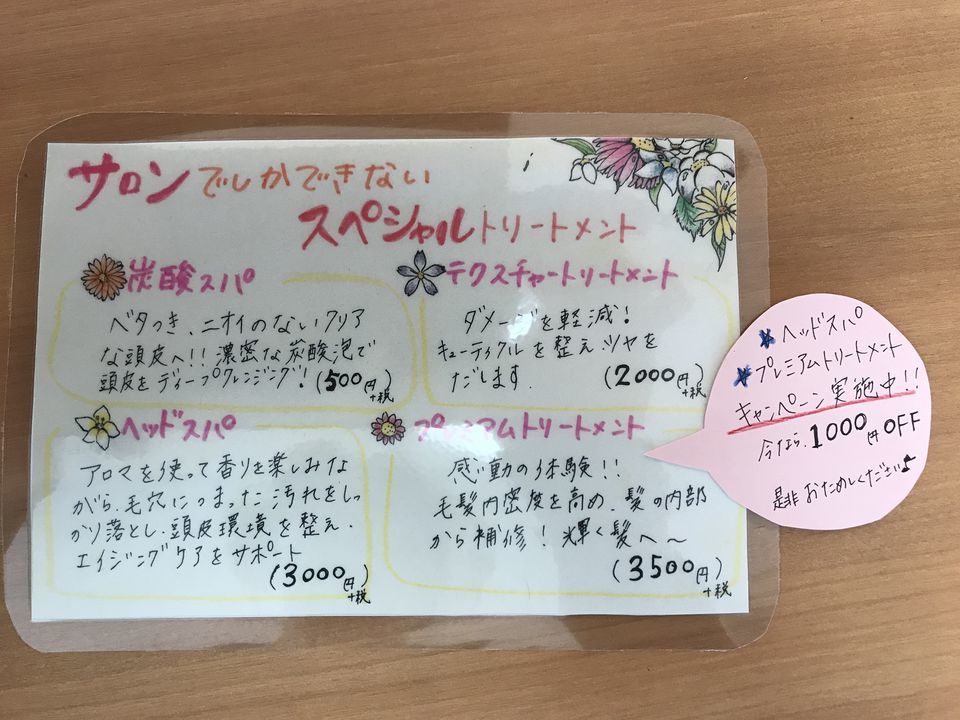 サロンでしかできない
スペシャルトリートメント
炭酸スパ
ベタつき、ニオイのないクリア
な頭皮へ!! 濃密な炭酸泡で
頭皮をディープクレンジング!
(500円+税)
テクスチャートリートメント
ダメージを軽減!
キューティクルを整え、ツヤを
だします。
(2000円+税)
ヘッドスパ
アロマを使って香りを楽しみな
がら、毛穴につまった汚れをしっ
かり落とし、頭皮環境を整え、
エイジングケアをサポート
(3000円+税)
プレミアムトリートメント
感動の体験!!
毛髪内密度を高め、髪の内部
から補修! 輝く髪へ〜
(3500円+税)
★ヘッドスパ
★プレミアムトリートメント
キャンペーン実施中!!
今なら、1000円OFF
是非おためしください♪